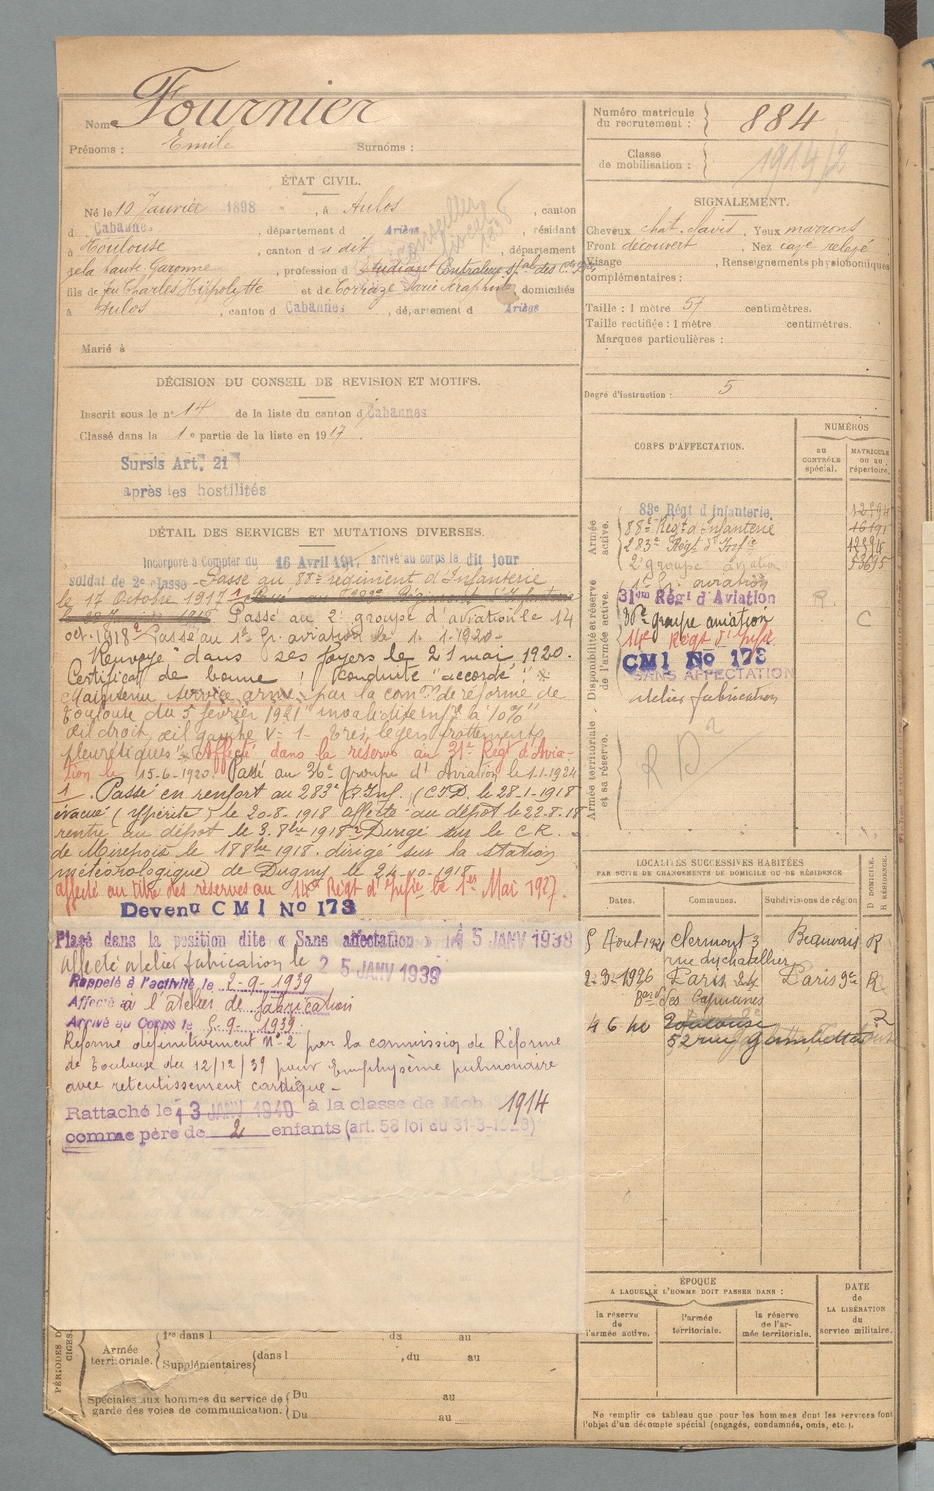 Nom Fournier
Prénoms : Emile Surnoms :
ÉTAT CIVIL.
Né le 10 Janvier 1898, à Aulos, canton
d Cabannes, département d Ariège, résidant
à Toulouse, canton d u dit, département
de la haute Garonne, profession d Etudiant Contrôleur
fils de feu Charles Hippolytte et de Marie Séraphine, domiciliés
à Aulos, canton d Cabannes, département d Ariège
Marié à
DÉCISION DU CONSEIL DE REVISION ET MOTIFS.
Inscrit sous le n° 14 de la liste du canton d Cabannes
Classé dans la 1e partie de la liste en 1917.
Sursis Art. 21
après les hostilités
DÉTAIL DES SERVICES ET MUTATIONS DIVERSES.
Incorporé à Compter du 16 Avril 1917, arrivé au corps le dit jour
soldat de 2e classe - Passé au 88e régiment d'Infanterie
le 17 Octobre 1917
Passé au 2e groupe d'aviation le 14
oct. 1918 Passé au 1er Gr. aviation le 1-1-1920-
Renvoyé dans ses foyers le 21 mai 1920.
Certificat de bonne conduite "accordé"
Maintenu service armé par la comon de réforme de
Toulouse du 5 février 1921 "invalidité inf. à 10%"
œil droit, œil gauche V = 1 - très légers frottements
pleurétiques" Affecté dans la réserve au 31e Régt d'Avia-
tion le 15-6-1920. Passé au 36e groupe d'Aviation le 1-1-1924
1. Passé en renfort au 283e R. Inf. (C.I.D. le 28-1-1918
évacué (ypérite) le 20-8-1918 affecté au dépôt le 22-8-18
rentré au dépôt le 3-8bre 1918 Dirigé sur le C.R.
de Mirepoix le 18 8bre 1918. dirigé sur la station
météorologique de Dugny le 24-10-1918
affecté au titre des réserves au 14e Régt d'Infie le 1er Mai 1927.
Devenu C M I No 173
Placé dans la position dite « Sans affectation » le 5 JANV 1938
affecté atelier fabrication le 25 JANV 1939
Rappelé à l'activité le 2-9-1939
Affecté à l'atelier de fabrication
Arrivé au Corps le 5-9-1939
Réformé définitivement N° 2 par la commission de Réforme
de Toulouse du 12/12/39 pour Emphysème pulmonaire
avec retentissement cardiaque -
Rattaché le 3 JANV 1940 à la classe de Mob 1914
comme père de 2 enfants (art. 58 loi du 31-3-1928)
Armée territoriale. 1re dans l du au
Supplémentaires dans l , du au
Spéciales aux hommes du service de garde des voies de communication. Du au
Du au
Numéro matricule du recrutement : 884
Classe de mobilisation : 1914/2
SIGNALEMENT.
Cheveux chat., Yeux marrons
Front découvert, Nez cave relevé
Visage, Renseignements physionomiques
complémentaires :
Taille : 1 mètre 57 centimètres.
Taille rectifiée : 1 mètre centimètres.
Marques particulières :
Degré d'instruction : 5
CORPS D'AFFECTATION.
NUMÉROS
au CONTRÔLE spécial.
MATRICULE ou au répertoire.
Armée active.
83e Régt d'infanterie.
88e Régt d'Infanterie
283e Régt d'Infie
2e groupe aviation
Disponibilité et réserve de l'armée active.
1er Gr. aviation
31me Régt d'Aviation R.
36e groupe aviation C
14e Régt d'Infie
CMI No 173
SANS AFFECTATION
atelier fabrication
Armée territoriale et sa réserve.
LOCALITÉS SUCCESSIVES HABITÉES
PAR SUITE DE CHANGEMENTS DE DOMICILE OU DE RÉSIDENCE
Dates. Communes. Subdivisions de région D. DOMICILE. R. RÉSIDENCE.
5 Août 1921 Clermont Beauvais R
rue du chatellier
2-3-1926 Paris Paris 3e R
Bard des Capucines
4 6 40 Toulouse R
52 rue Gambetta
ÉPOQUE
A LAQUELLE L'HOMME DOIT PASSER DANS :
la réserve de l'armée active.
l'armée territoriale.
la réserve de l'armée territoriale.
DATE de LA LIBÉRATION du service militaire.
Ne remplir ce tableau que pour les hommes dont les services font
l'objet d'un décompte spécial (engagés, condamnés, omis, etc.).